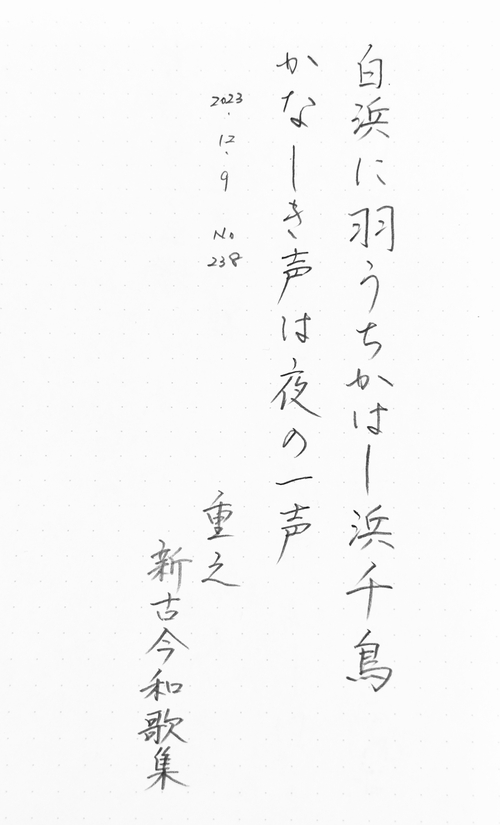 白浜に羽うちかはし浜千鳥
かなしき声は夜の一声
2023.12.9 No 238
重之
新古今和歌集